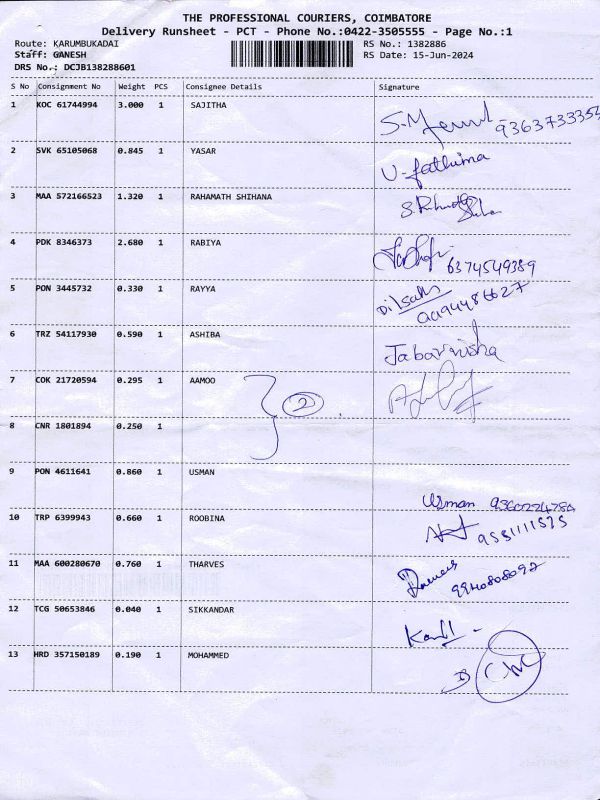 THE PROFESSIONAL COURIERS, COIMBATORE
Delivery Runsheet - PCT - Phone No.:0422-3505555 - Page No.:1
Route: KARUMBUKADAI RS No.: 1382886
Staff: GANESH RS Date: 15-Jun-2024
DRS No.: DCJB138288601
S No Consignment No Weight PCS Consignee Details Signature
1 KOC 61744994 3.000 1 SAJITHA
9363733353
2 SVK 65105068 0.845 1 YASAR
U-fathima
3 MAA 572166523 1.320 1 RAHAMATH SHIHANA
4 PDK 8346373 2.680 1 RABIYA
6374549389
5 PON 3445732 0.330 1 RAYYA
Dilsath
6 TRZ 54117930 0.590 1 ASHIBA
Jabarnisha
7 COK 21720594 0.295 1 AAMOO
2
8 CNR 1801894 0.250 1
9 PON 4611641 0.860 1 USMAN
Usman
10 TRP 6399943 0.660 1 ROOBINA
11 MAA 600280670 0.760 1 THARVES
9940808092
12 TCG 50653846 0.040 1 SIKKANDAR
13 HRD 357150189 0.190 1 MOHAMMED